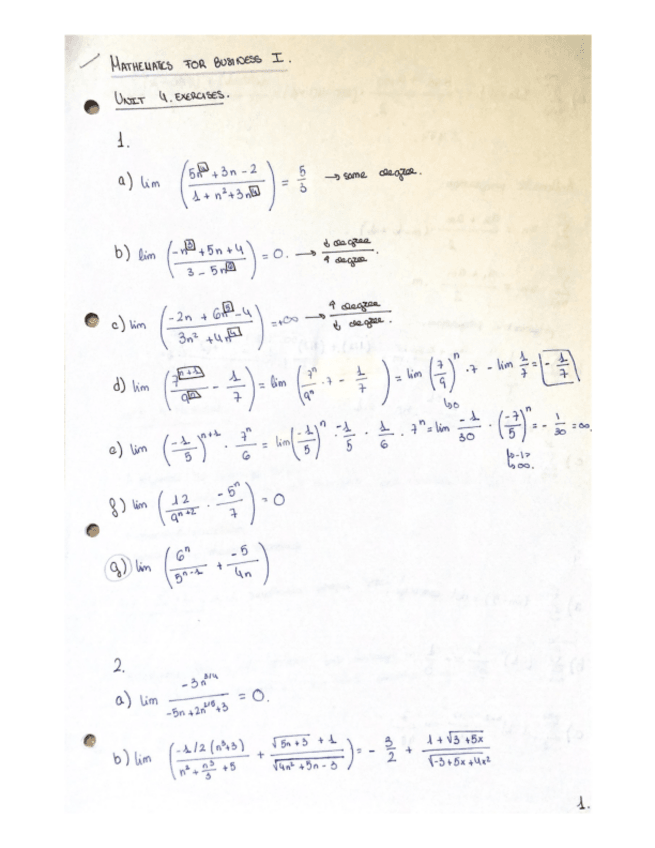 MATHEMATICS FOR BUSINESS I.
UNIT 4. EXERCISES.
1.
a) lim ( (5n + 3n - 2) / (1 + n² + 3n) ) = 5/3 → same degree.
b) lim ( (-n³ + 5n + 4) / (3 - 5n) ) = 0. → ↓ degree / ↑ degree.
c) lim ( (-2n + 6n⁵ - 4) / (3n² + 4n) ) = ∞ → ↑ degree / ↓ degree.
d) lim ( 7ⁿ⁺¹ / 9ⁿ - 1/7 ) = lim ( 7ⁿ/9ⁿ · 7 - 1/7 ) = lim (7/9)ⁿ · 7 - lim 1/7 = - 1/7
↳0
e) lim (-1/5)ⁿ⁺¹ · 7ⁿ/6 = lim (-1/5)ⁿ · -1/5 · 1/6 · 7ⁿ = lim -1/30 · (-7/5)ⁿ = - 1/30 = ∞.
↳∞.
f) lim ( 12/9ⁿ⁺² · -5ⁿ/7 ) = 0
g) lim ( 6ⁿ/5ⁿ⁻¹ + -5/4n )
2.
a) lim -3n³ᐟ⁴ / (-5n + 2n + 3) = 0.
b) lim ( (-1/2 (n³+3)) / (n² + n³/3 + 5) + (√(5n+3) + 1) / √(4n² + 5n - 3) ) = - 3/2 + (1 + √(3 + 5x)) / √(-3 + 5x + 4x²)
1.